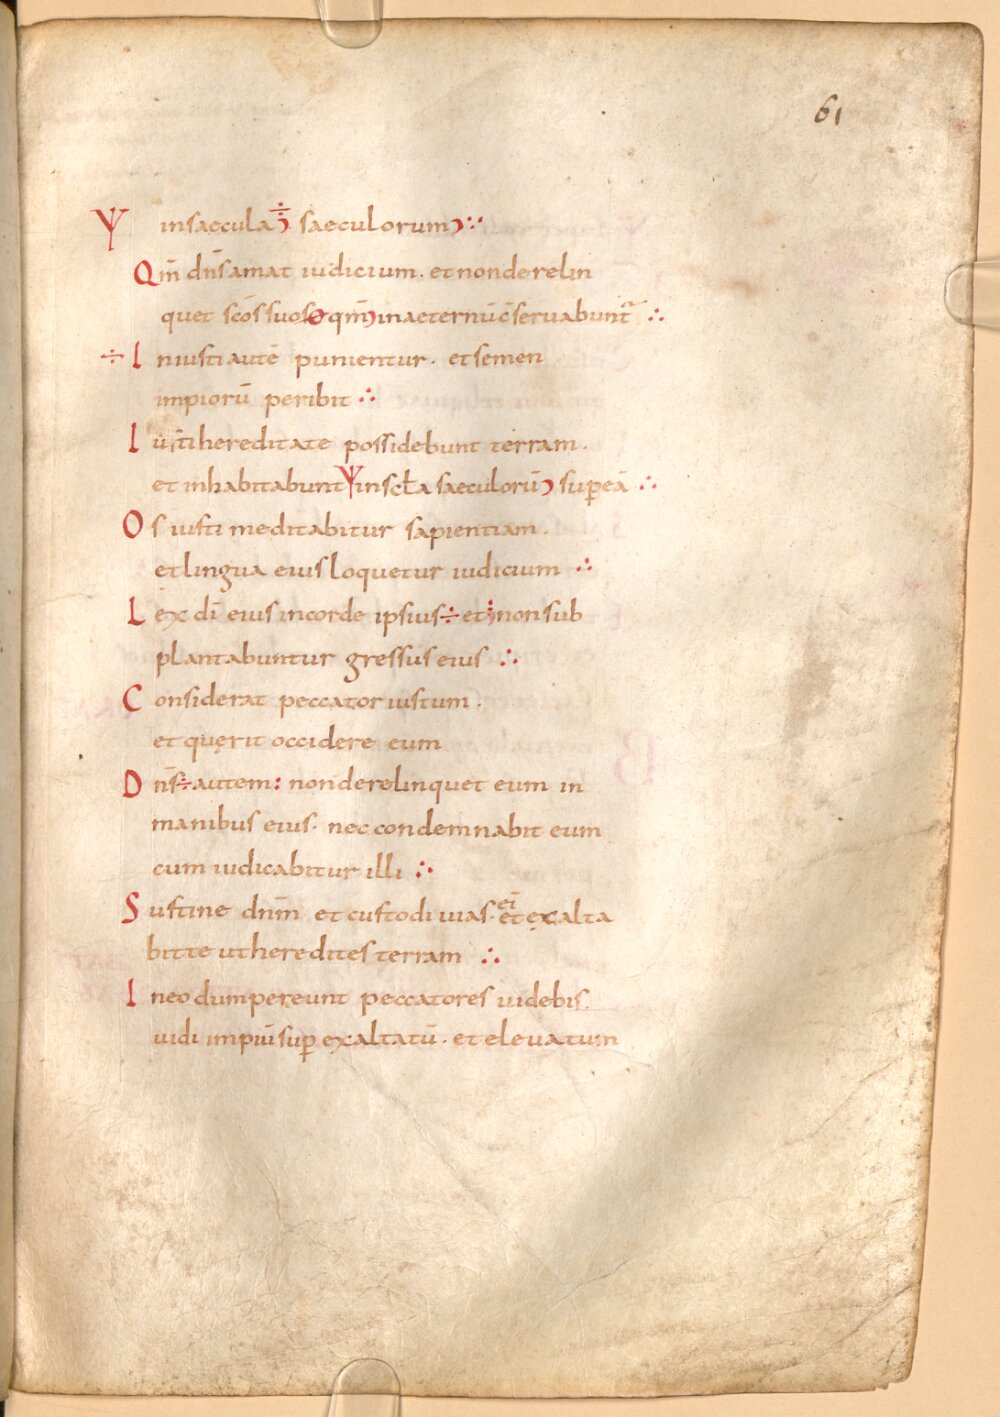 61
Ψ in saecula ÷ saeculorum ∴
Qm̄ dn̄s amat iudicium · et non derelin
quet scōs suos qm̄ in aeternū c̄seruabunt ∴
÷ Iniusti autē punientur · et semen
impiorū peribit ∴
Iusti hereditate possidebunt terram ·
et inhabitabunt Ψ in scła saeculorū sup eā ∴
Os iusti meditabitur sapientiam ·
et lingua eius loquetur iudicium ∴
Lex dī eius in corde ipsius ÷ et: non sub
plantabuntur gressus eius ∴
Considerat peccator iustum ·
et quęrit occidere eum
Dn̄s ÷ autem: non derelinquet eum in
manibus eius · nec condemnabit eum
cum iudicabitur illi ∴
Sustine dnm̄ et custodi uias · ei' et exalta
bit te ut heredites terram ∴
In eo dum pereunt peccatores uidebis ·
uidi impiū sup exaltatū · et eleuatum